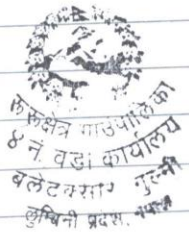 रुरुक्षेत्र गाउँपालिका
४ नं. वडा कार्यालय
बलेटक्सार गुल्मी
लुम्बिनी प्रदेश, नेपाल